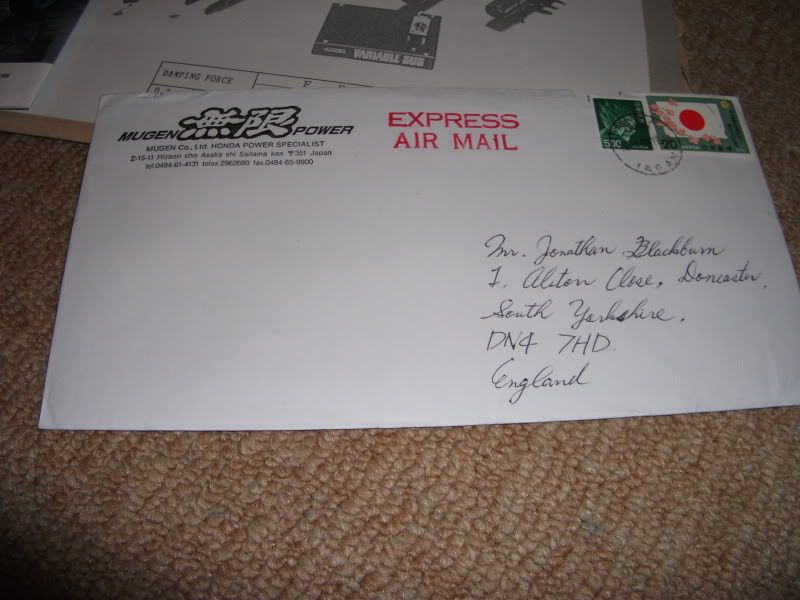 VARIABLE BUS
DAMPING FORCE
MUGEN 無限 POWER
MUGEN Co., Ltd. HONDA POWER SPECIALIST
2-15-11 Hizaori cho Asaka shi Saitama ken 〒351 Japan
tel.0484-61-4131 telex.2962680 fax.0484-65-9900
EXPRESS
AIR MAIL
500
20
NIPPON
JAPAN
Mr. Jonathan Blackburn
7. Alston Close, Doncaster,
South Yorkshire.
DN4 7HD.
England